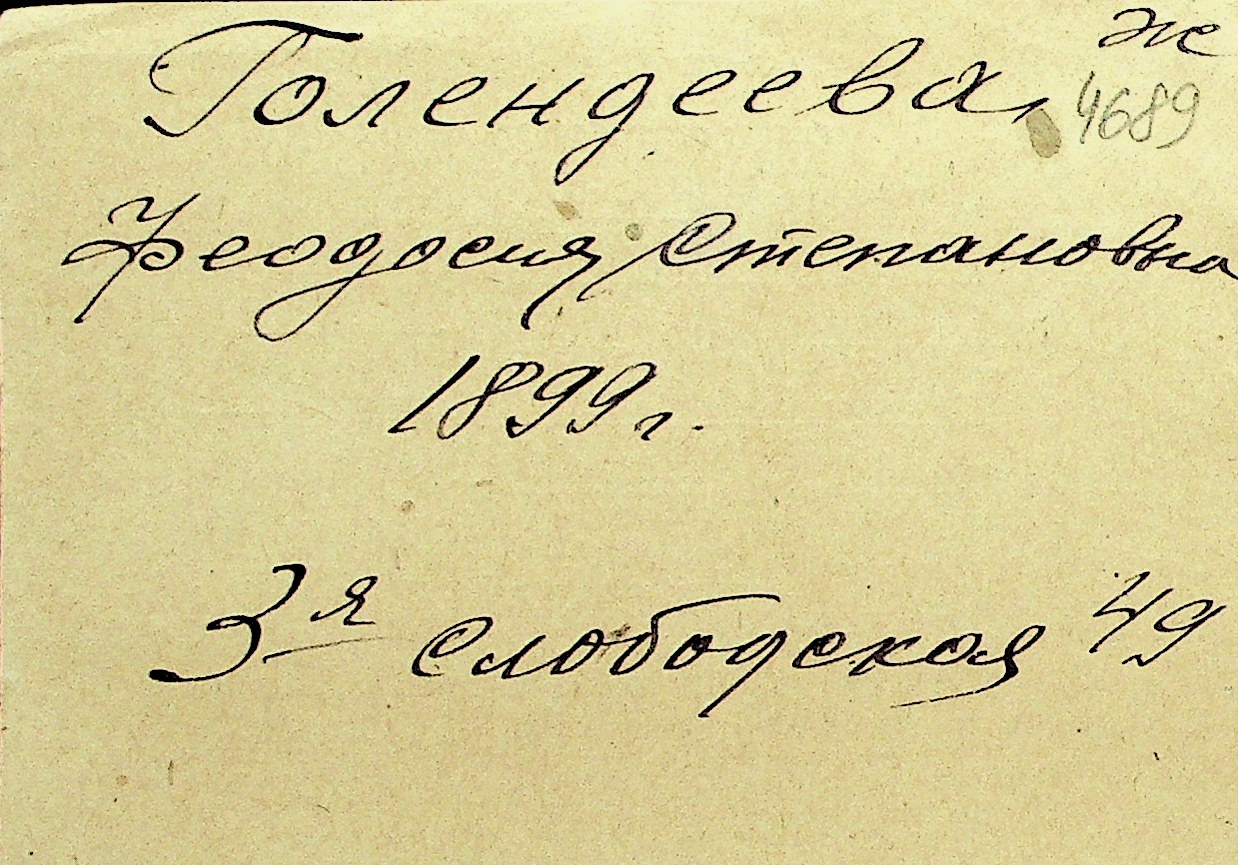 Голендеева, же
4689
Феодосия Степановна
1899 г.
3я Слободская 49